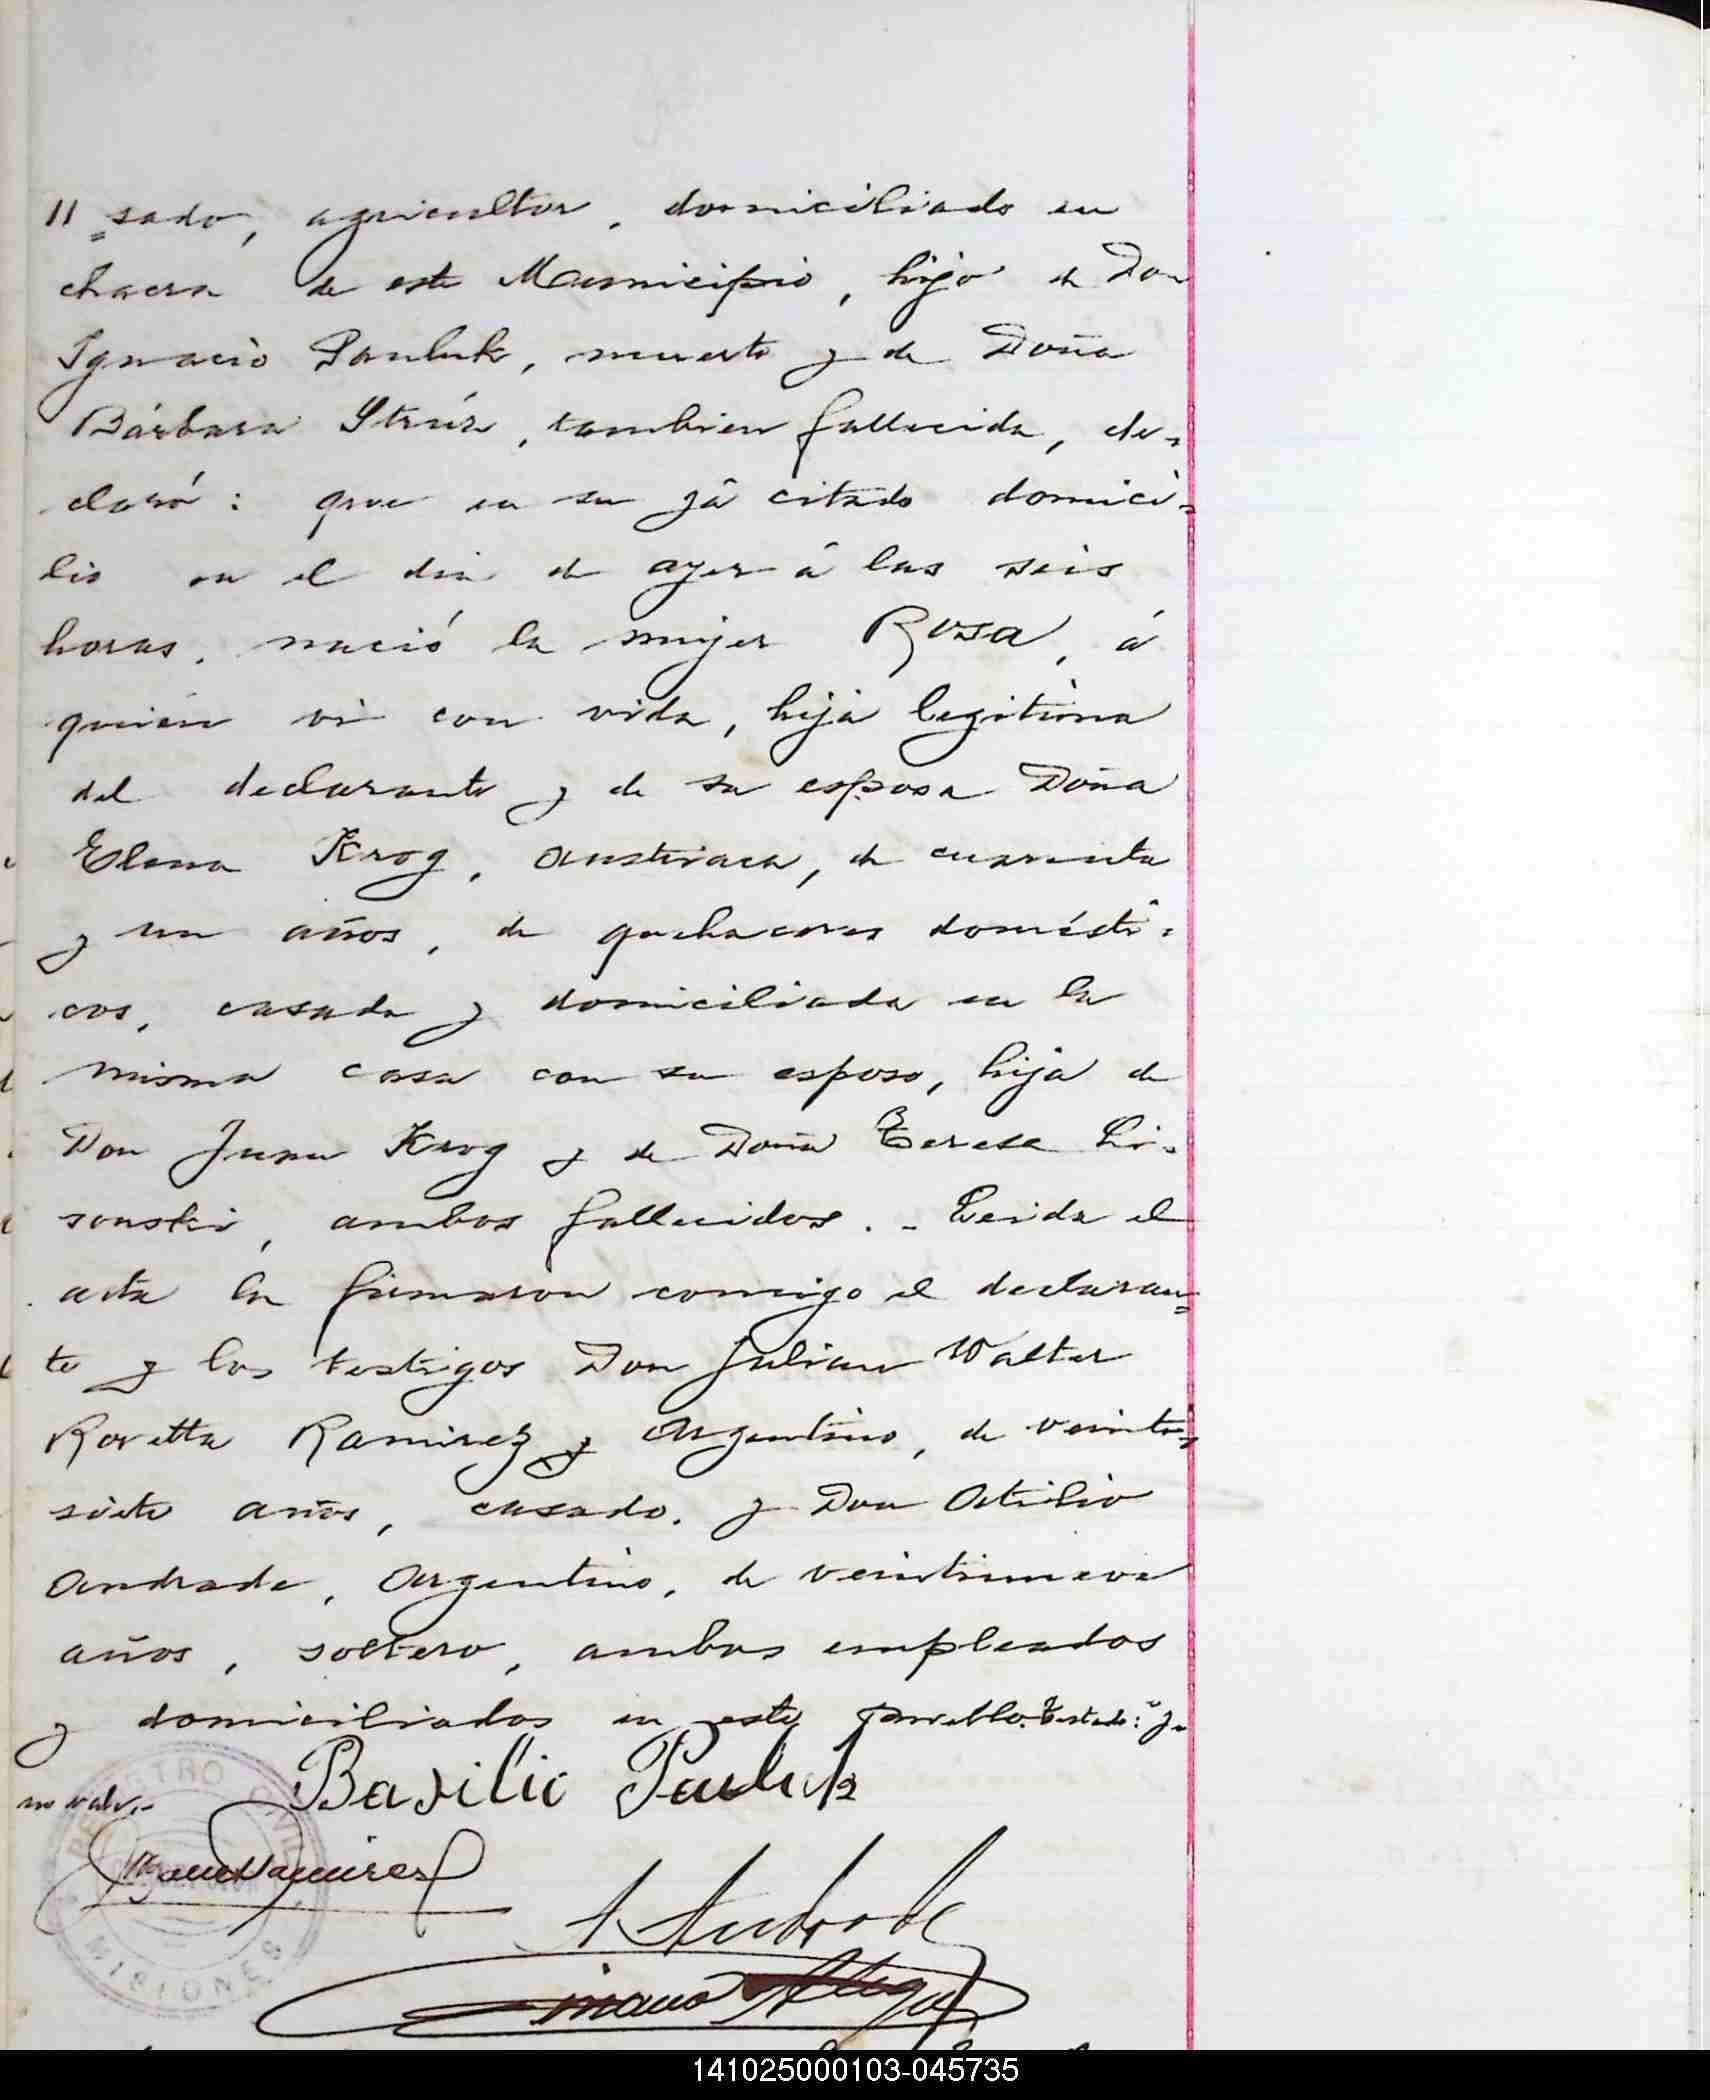 // sado, agricultor, domiciliado en
chacra de este Municipio, hijo de Don
Ignacio Pauluk, muerto y de Doña
Bárbara Strúz, tambien fallecida, de-
claró: que en su yá citado domici-
lio en el dia de ayer á las seis
horas, nació la mujer Rosa, á
quien vi con vida, hija legitima
del declarante y de su esposa Doña
Elena Krog, austriaca, de cuarenta
y un años, de quehaceres domésti-
cos, casada y domiciliada en la
misma casa con su esposo, hija de
Don Juan Krog y de Doña Teresa Li-
sonski, ambos fallecidos.- Leida el
acta la firmaron comigo el declaran-
te y los testigos Don Julian Walter
Rovetta Ramirez y Argentino, de veinte-
siete años, casado, y Don Atilio
Andrade, Argentino, de veintinueve
años, soltero, ambos empleados
y domiciliados en este pueblo. Testado: "y"
no vale.-
Basilio Pauluk
A Andrade
REGISTRO CIVIL
MISIONES
141025000103-045735